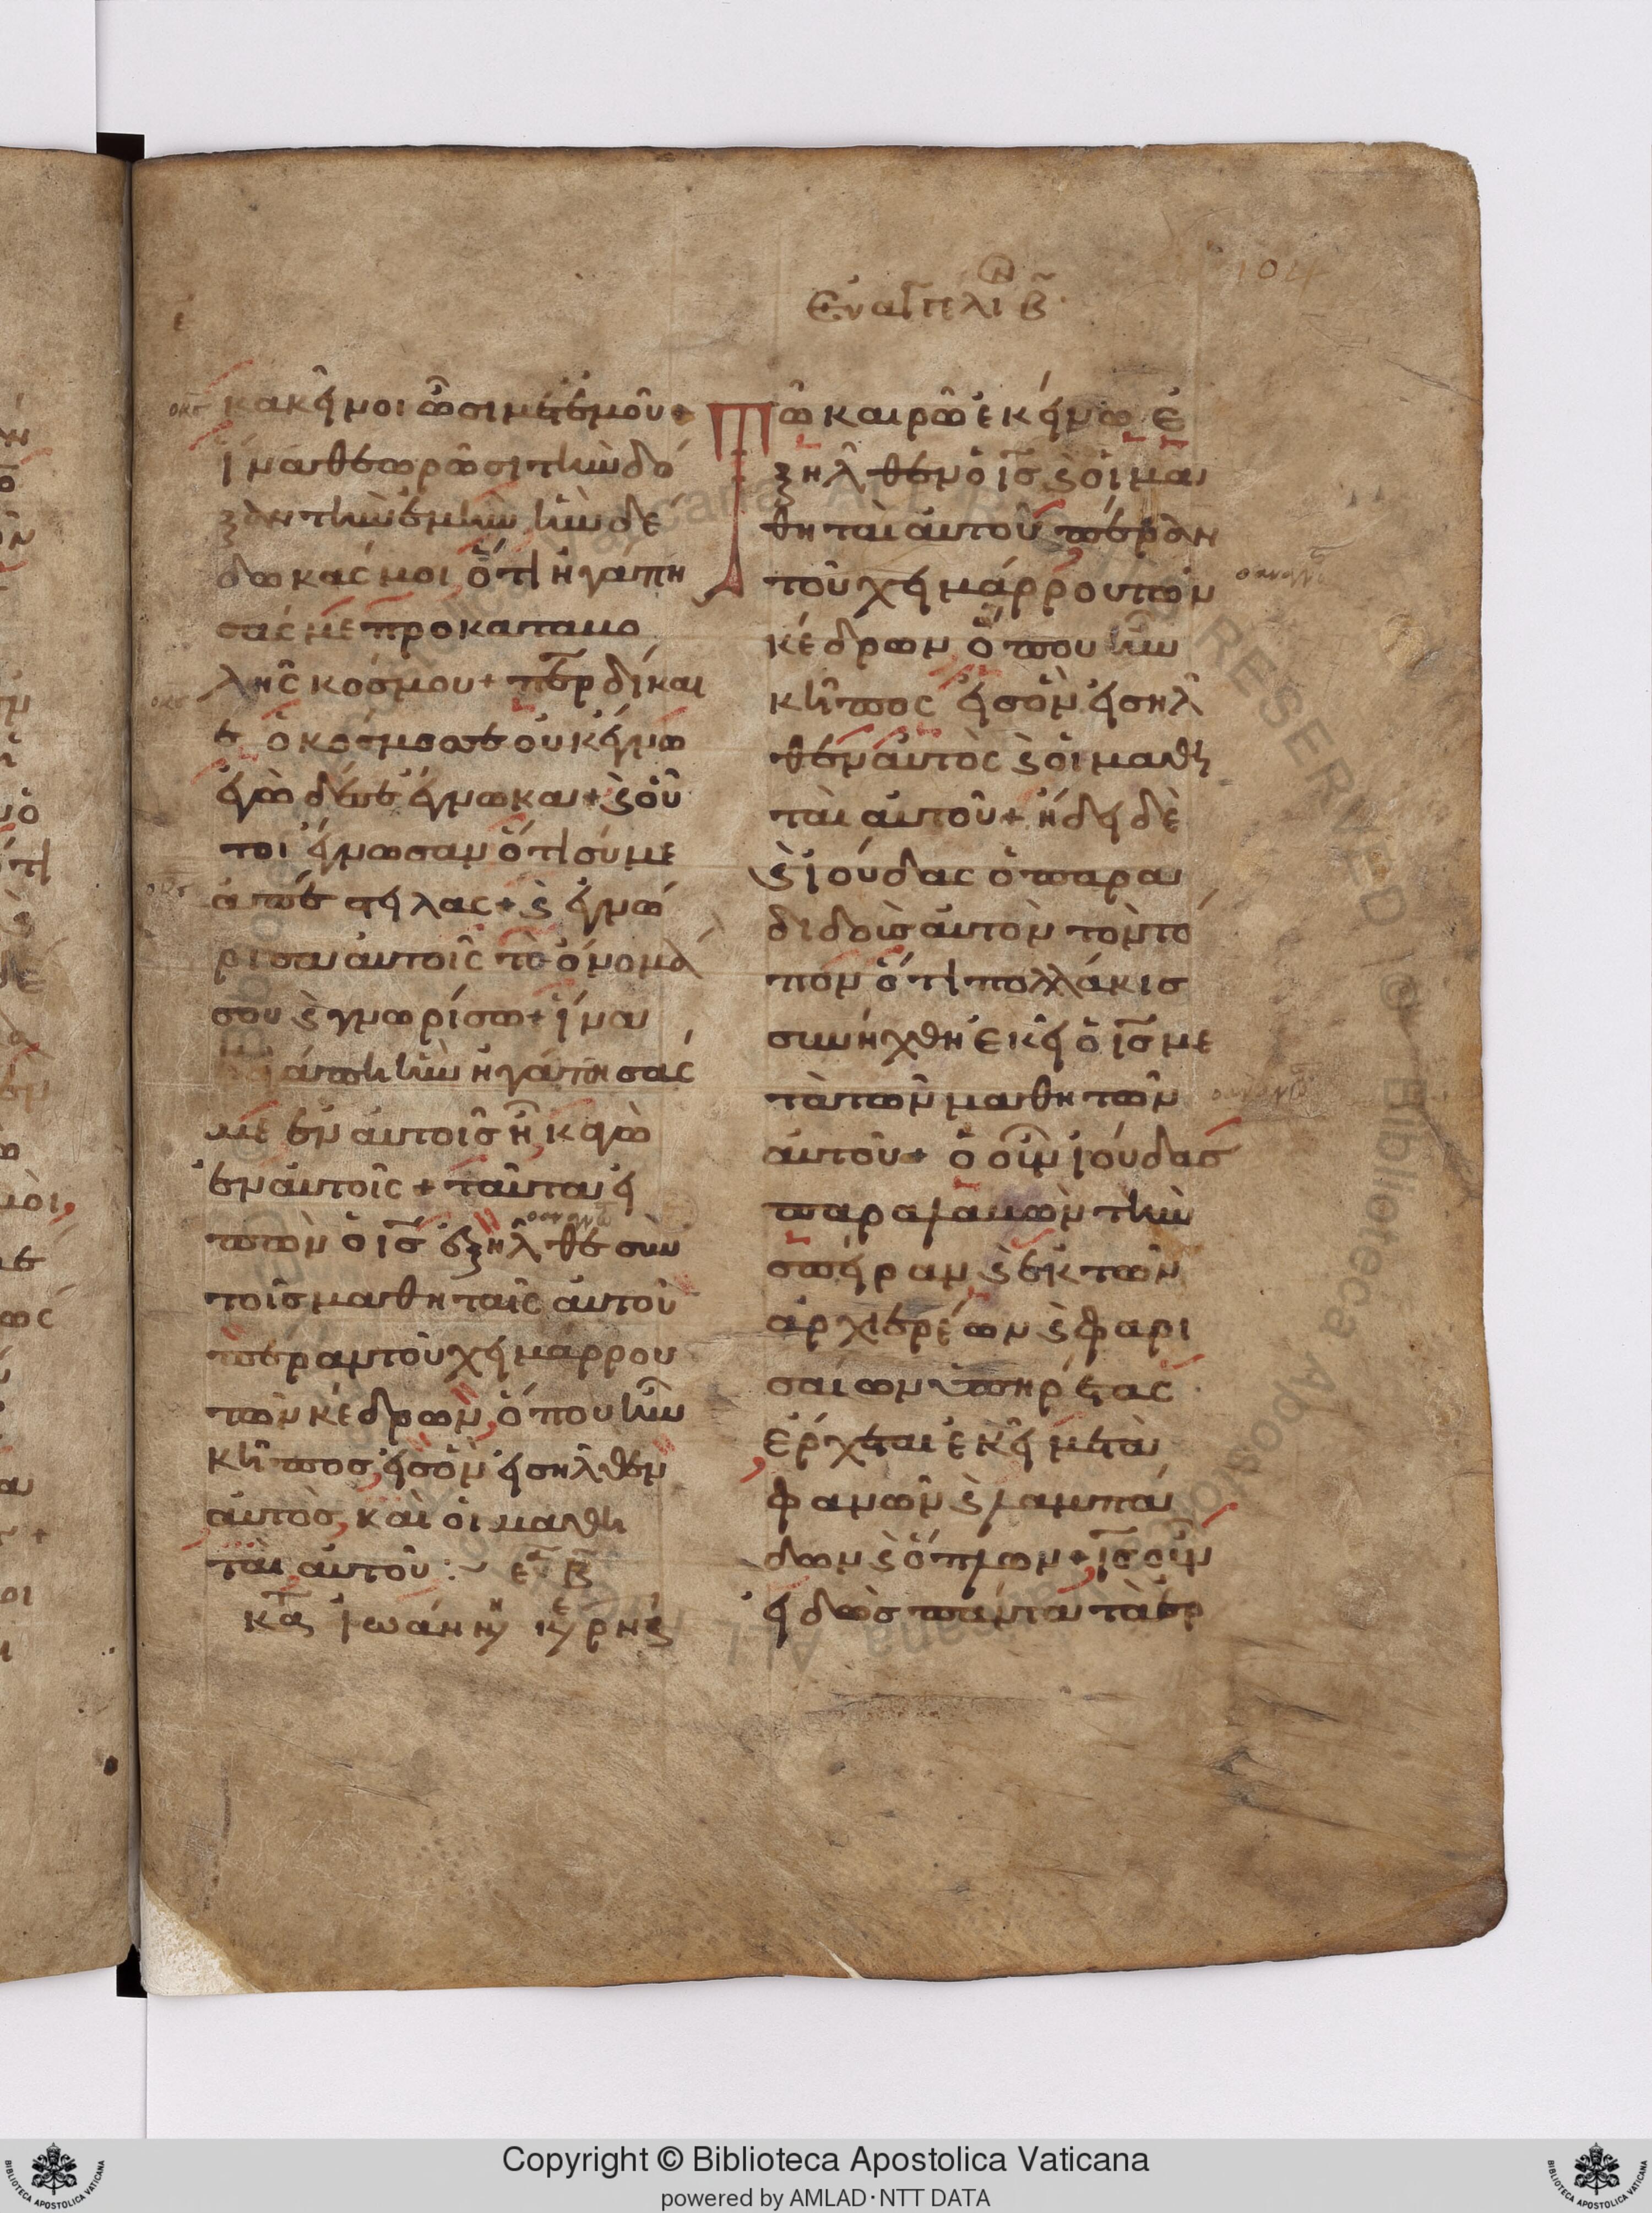 Εὐαγγελι Β
104
κακῆνοι ὦσι μετ ἐμοῦ +
ἵνα θεωρῶσι τὴν δό
ξαν τὴν ἐμὴν ἣν δέ
δωκάς μοι ὅτι ἠγάπη
σάς με προ καταβο
λῆς κόσμου + περ δίκαι
ε ὁ κόσμος σε οὐκ ἔγνω
ἐγὼ δέ σε ἔγνωκα + ϗ οὗ
τοι ἔγνωσαν ὅτι σύ με
ἀπέστειλας + ϗ ἐγνώ
ρισα αὐτοῖς τὸ ὄνομά
σου ϗ γνωρίσω + ἵνα
ἡ ἀγάπη ἣν ἠγάπησάς
με ἐν αὐτοῖς ᾖ κἀγὼ
ἐν αὐτοῖς + ταῦτα εἰ
πὼν ὁ ις ἐξῆλθε σὺν
τοῖς μαθηταῖς αὐτοῦ
πέραν τοῦ χειμάρρου
τῶν κέδρων, ὅπου ἦν
κῆπος, εἰς ὃν εἰσῆλθεν
αὐτὸς, καὶ οἱ μαθη
ταὶ αὐτοῦ :~ ευ Β
κατ Ἰωάννην
Τῶ καιρῶ ἐκείνω ἐ
ξῆλθεν ὁ ις ϗ οἱ μα
θηταὶ αὐτοῦ πέραν
τοῦ χειμάρρου τῶν
κέδρων ὅπου ἦν
κῆπος εἰς ὃν εἰσῆλ
θεν αὐτὸς ϗ οἱ μαθη
ταὶ αὐτοῦ + ἤδει δὲ
ϗ ἰούδας ὁ παρα
διδοὺς αὐτὸν τὸν τό
πον ὅτι πολλάκις
συνήχθη ἐκεῖ ὁ ις με
τὰ τῶν μαθητῶν
αὐτοῦ + ὁ οὖν ἰούδας
παραλαβὼν τὴν
σπεῖραν ϗ ἐκ τῶν
ἀρχιερέων ϗ φαρι
σαίων ὑπηρέτας
ἔρχεται ἐκεῖ μετὰ
φανῶν ϗ λαμπά
δων ϗ ὅπλων + ις οὖν
εἰδὼς πάντα τὰ ἐρ
Copyright © Biblioteca Apostolica Vaticana
powered by AMLAD·NTT DATA